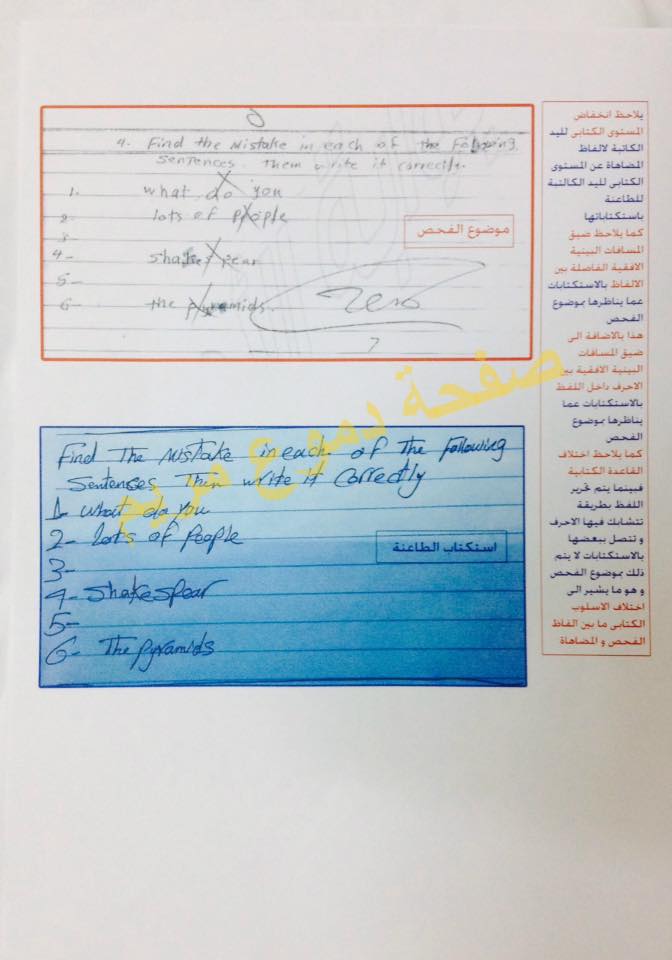 4. Find the Mistake in each of the Following
sentences. Them write it correctly.
1. what do you
2- lots of people
3-
4- shakes pear
5-
6- the pyramids.
zero
موضوع الفحص
Find The Mistake in each of The Following
Sentences Then write it Correctly
1- what do you
2- lots of People
3-
4- shakespear
5-
6- The pyramids
استكتاب الطاعنة
صفحة دموع مريم
يلاحظ انخفاض
المستوى الكتابى لليد
الكاتبة لالفاظ
المضاهاة عن المستوى
الكتابى لليد الكالتبة
للطاعنة
باستكتاباتها
كما يلاحظ ضيق
المسافات البينية
الافقية الفاصلة بين
الالفاظ بالاستكتابات
عما يناظرها بموضوع
الفحص
هذا بالاضافة الى
ضيق المسافات
البينية الافقية بين
الاحرف داخل اللفظ
بالاستكتابات عما
يناظرها بموضوع
الفحص
كما يلاحظ اختلاف
القاعدة الكتابية
فبينما يتم تحرير
اللفظ بطريقة
تتشابك فيها الاحرف
و تتصل ببعضها
بالاستكتابات لا يتم
ذلك بموضوع الفحص
و هو ما يشير الى
اختلاف الاسلوب
الكتابى ما بين الفاظ
الفحص و المضاهاة